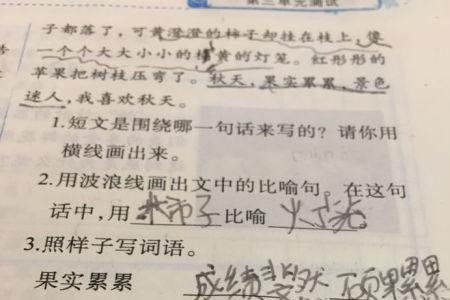 第三单元测试
子都落了，可黄澄澄的柿子却挂在枝上，像
一个个大大小小的橘黄的灯笼。红彤彤的
苹果把树枝压弯了。秋天，果实累累，景色
迷人，我喜欢秋天。
1.短文是围绕哪一句话来写的？请你用
横线画出来。
2.用波浪线画出文中的比喻句。在这句
话中，用 柿子 比喻
3.照样子写词语。
果实累累 成绩 硕果累累